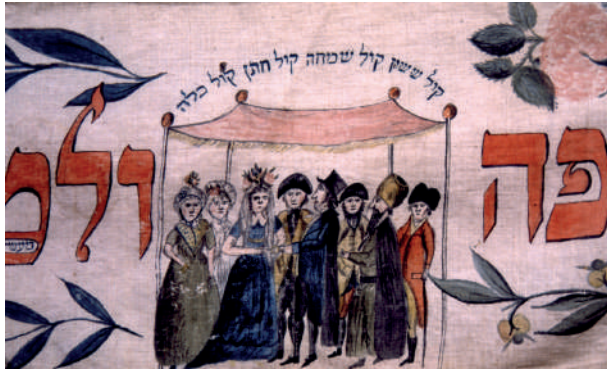 קול ששון קול שמחה קול חתן קול כלה
פה ולמ